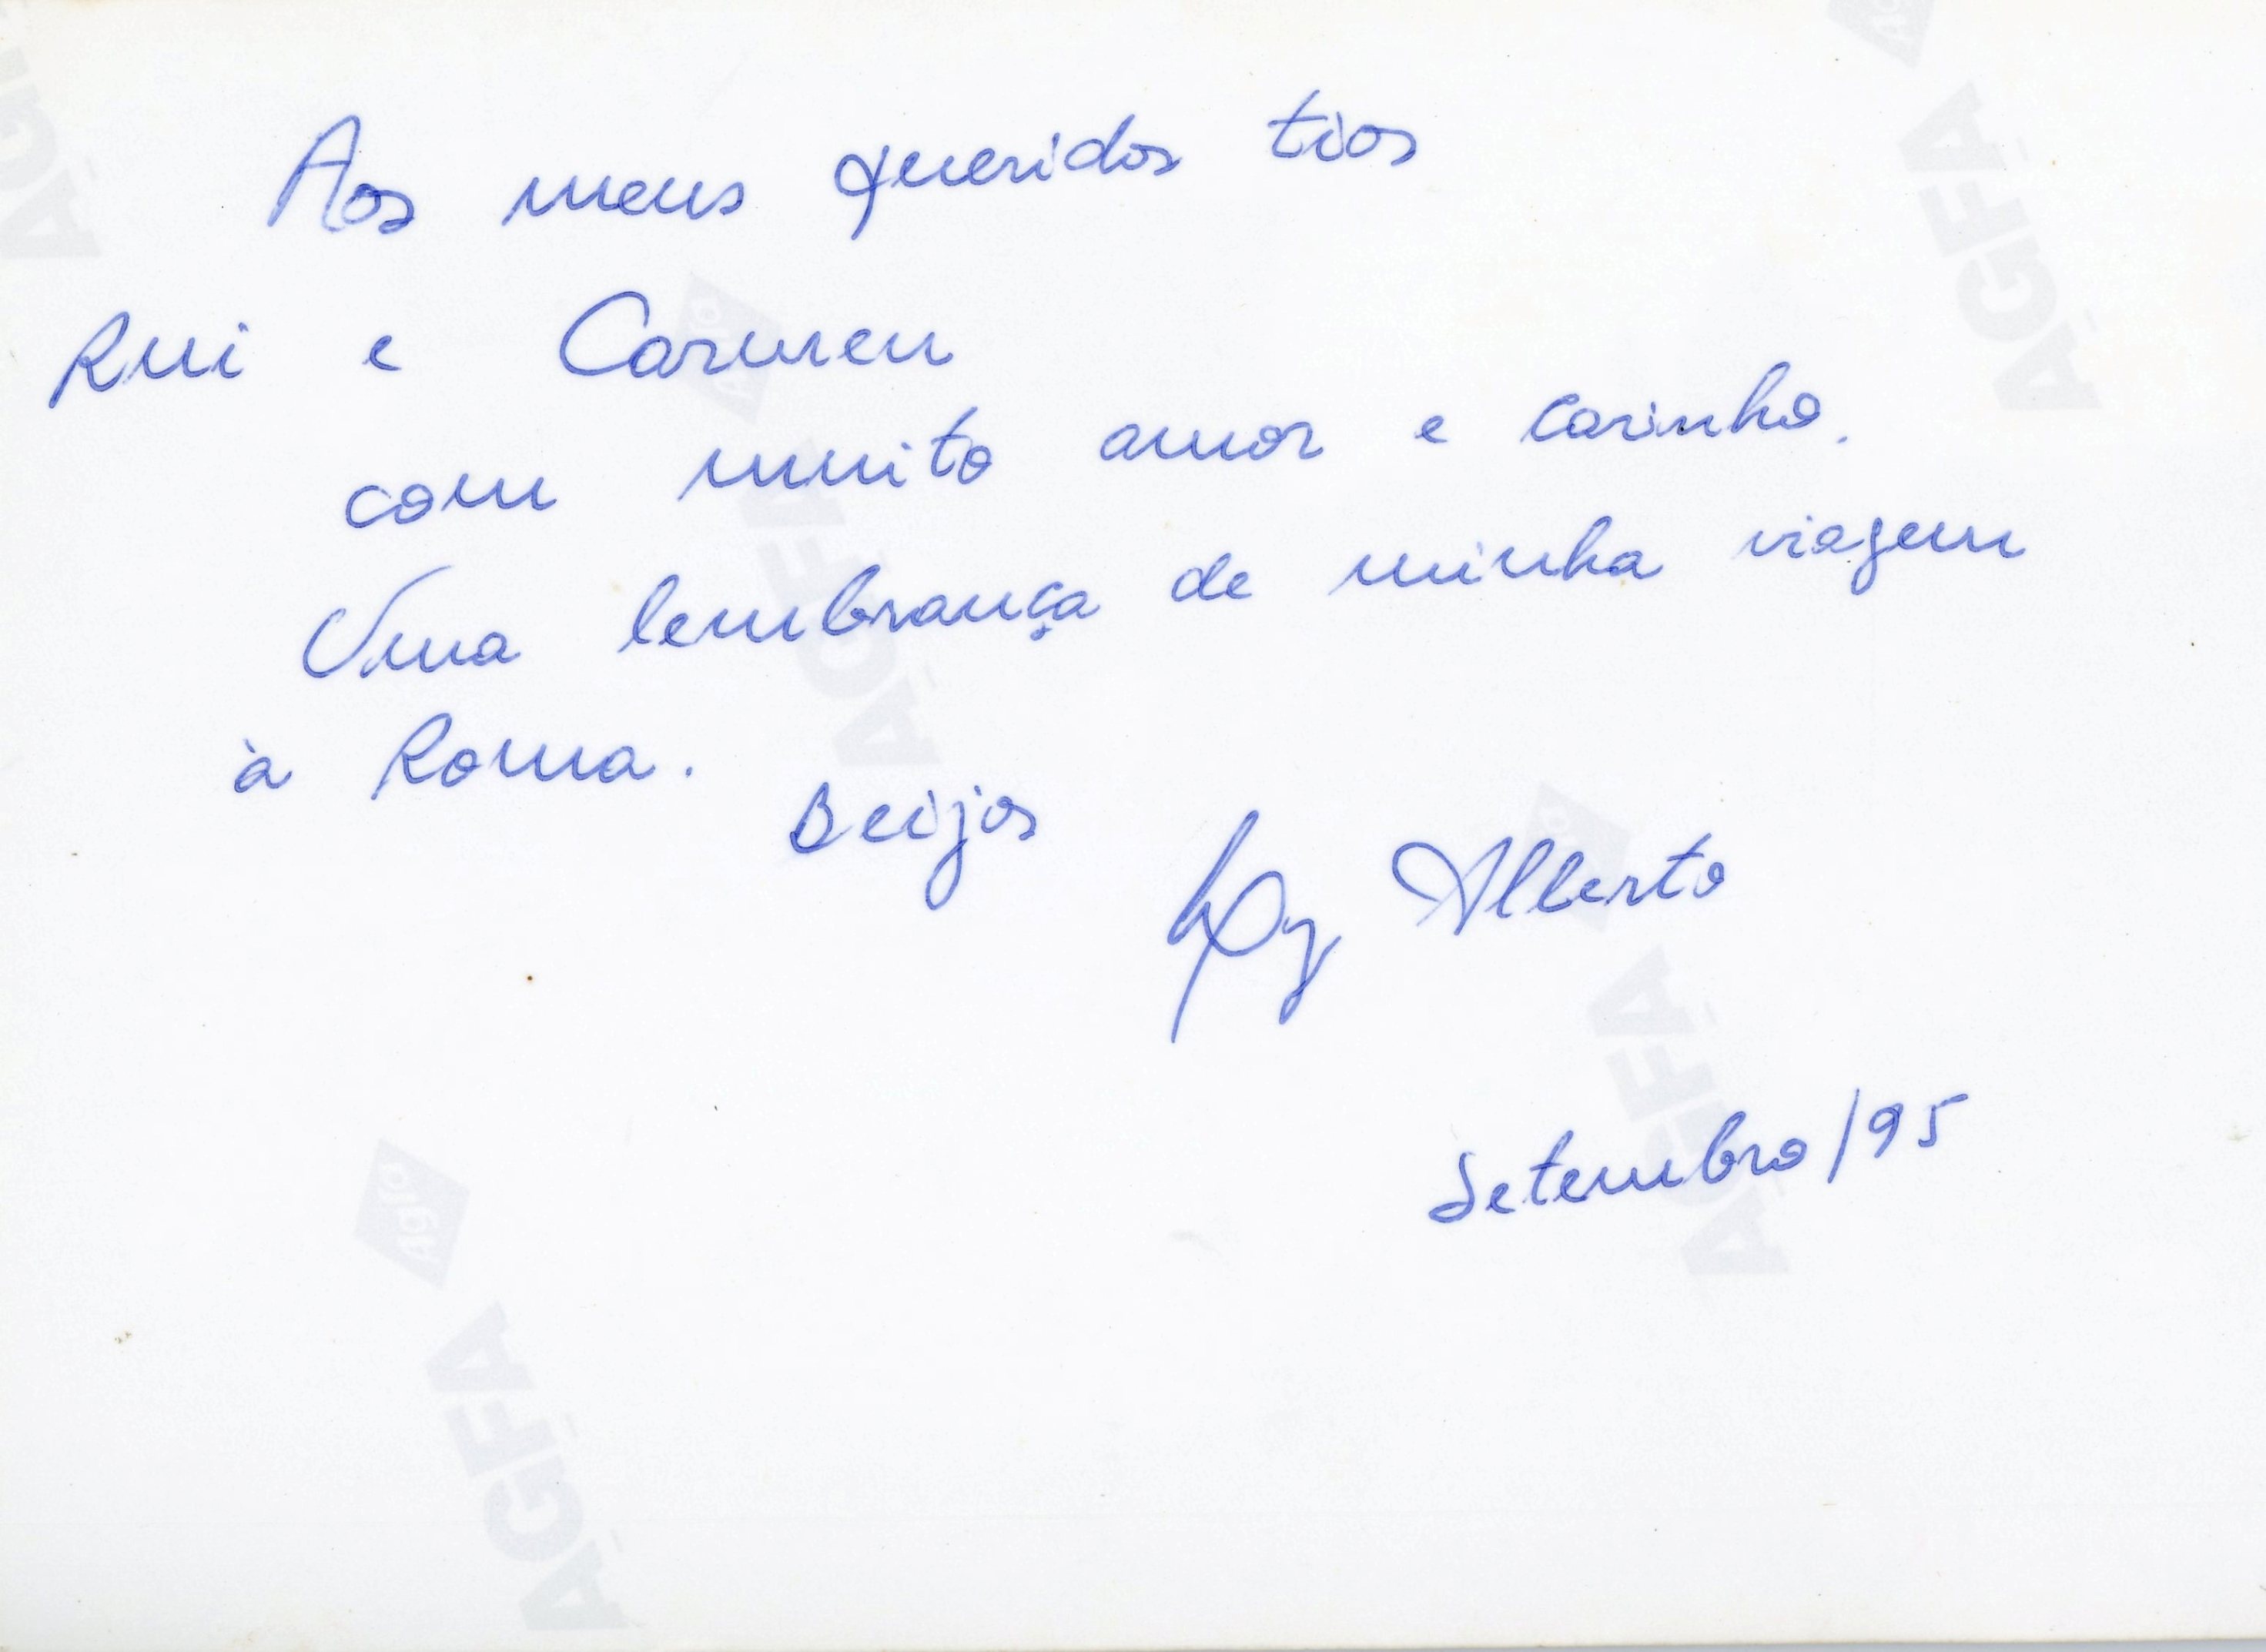 Aos meus queridos tios
Rui e Carmen
com muito amor e carinho.
Uma lembrança de minha viagem
à Roma.
Beijos
Alberto
Setembro/95
AGFA
Agfa
AGFA
Agfa
AGFA
Agfa
AGFA